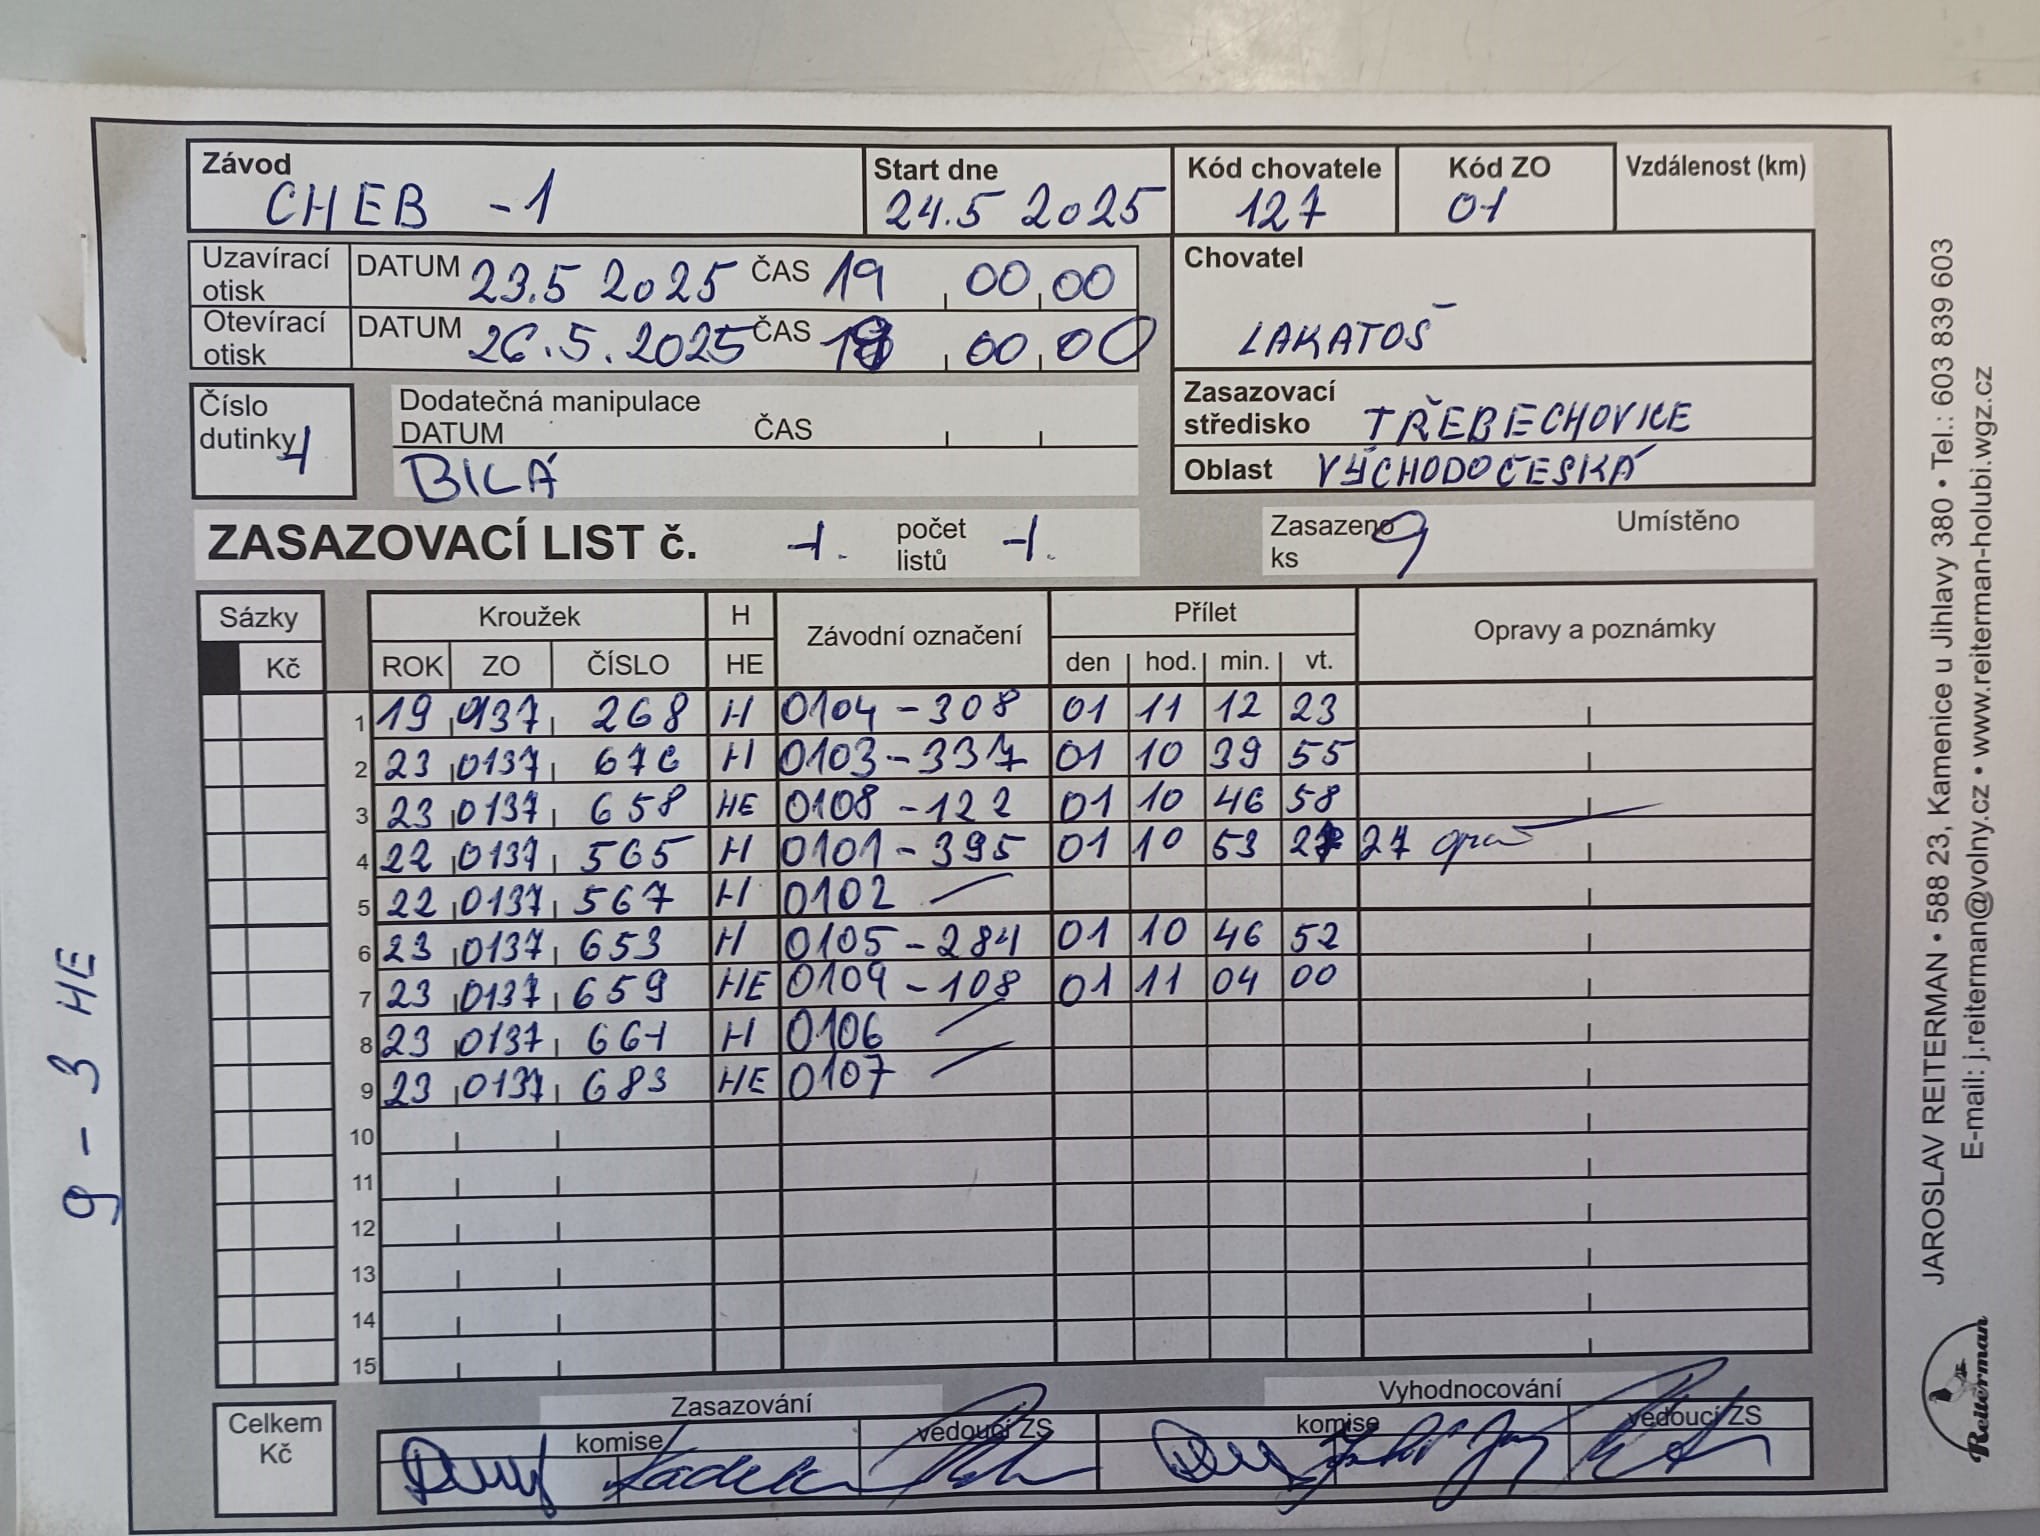 Závod
CHEB -1
Start dne
24.5 2025
Kód chovatele
127
Kód ZO
01
Vzdálenost (km)
Uzavírací otisk DATUM 23.5 2025 ČAS 19 00 00
Otevírací otisk DATUM 26.5.2025 ČAS 00 00
Chovatel
LAKATOŠ
Číslo dutinky 4
Dodatečná manipulace
DATUM ČAS
BILÁ
Zasazovací středisko TŘEBECHOVICE
Oblast VÝCHODOČESKÁ
ZASAZOVACÍ LIST č. 1. počet listů 1.
Zasazeno ks 9 Umístěno
Sázky Kroužek H Závodní označení Přílet Opravy a poznámky
Kč ROK ZO ČÍSLO HE den hod. min. vt.
1 19 0137 268 H 0104-308 01 11 12 23
2 23 0137 676 H 0103-337 01 10 39 55
3 23 0137 658 HE 0108-122 01 10 46 58
4 22 0137 565 H 0101-395 01 10 53 27
5 22 0137 567 H 0102 —
6 23 0137 653 H 0105-284 01 10 46 52
7 23 0137 659 HE 0109-108 01 11 04 00
8 23 0137 661 H 0106 —
9 23 0137 683 HE 0107 —
10
11
12
13
14
15
Celkem Kč
Zasazování
komise vedoucí ZS
Vyhodnocování
komise vedoucí ZS
9 - 3 HE
JAROSLAV REITERMAN • 588 23, Kamenice u Jihlavy 380 • Tel.: 603 839 603
E-mail: j.reiterman@volny.cz • www.reiterman-holubi.wgz.cz
Reiterman